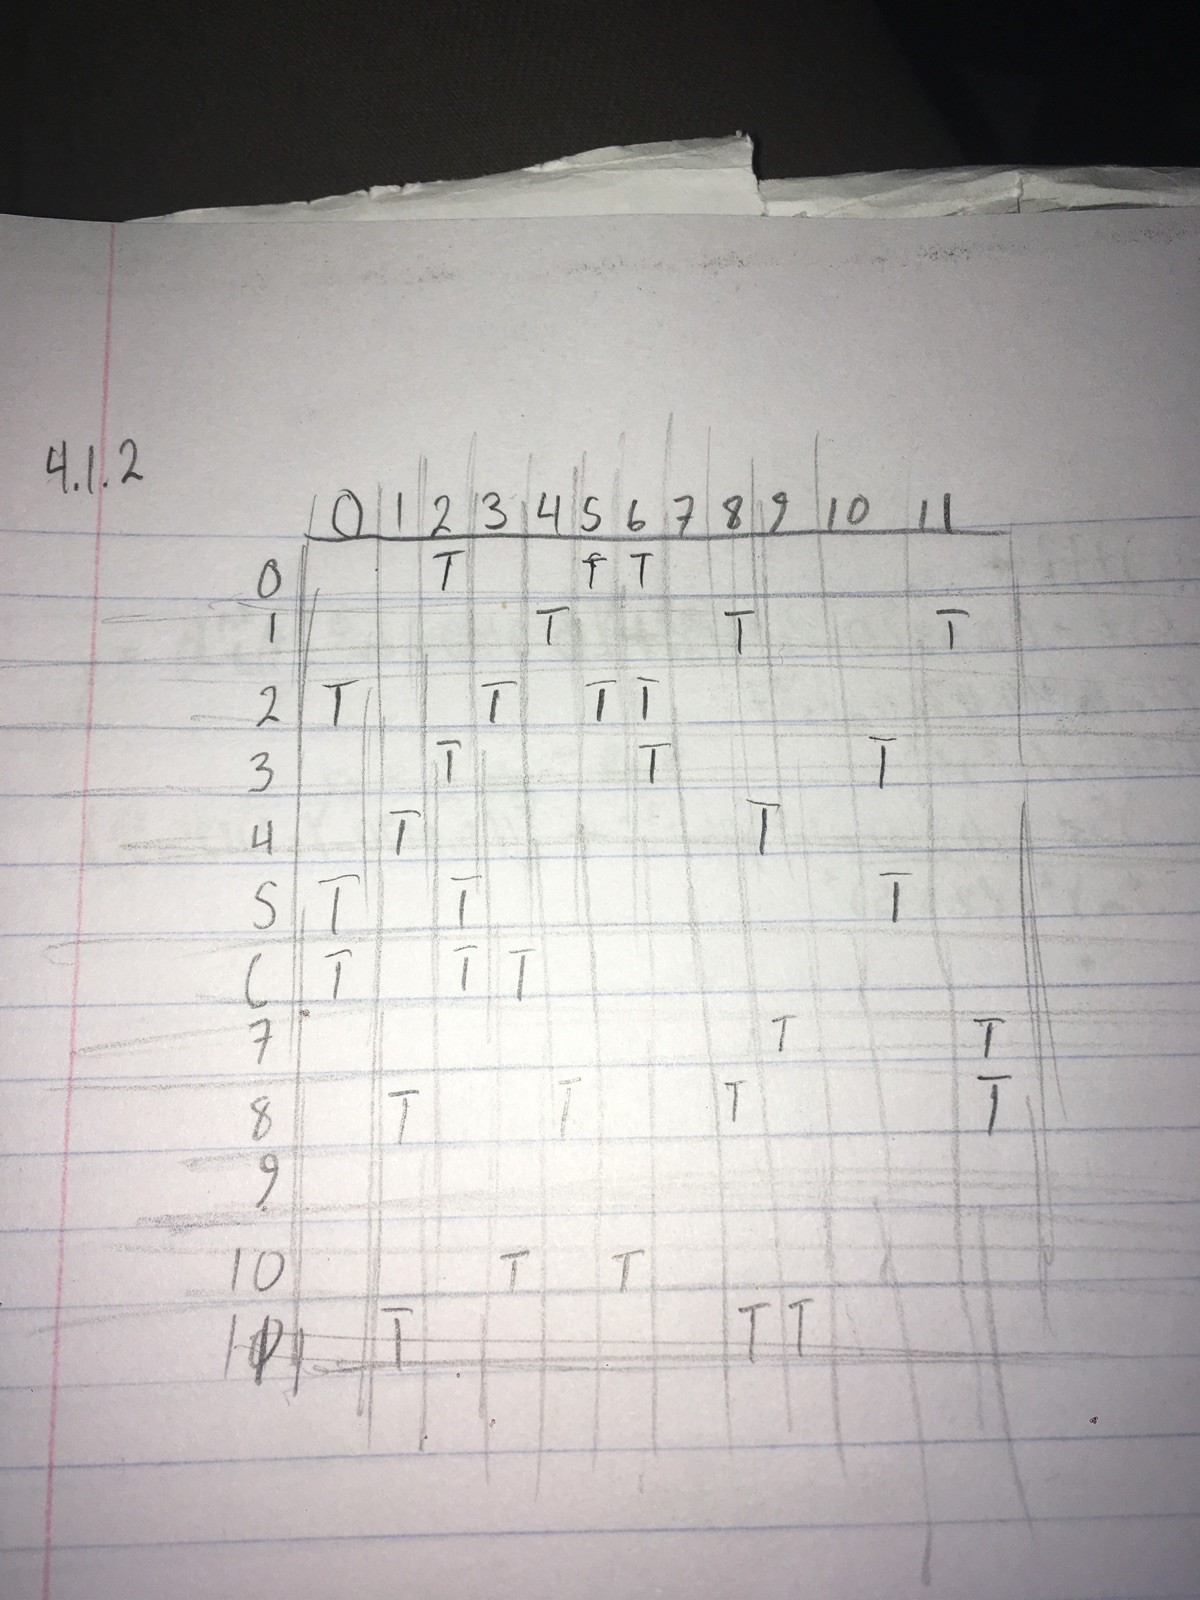 4.1.2
0 1 2 3 4 5 6 7 8 9 10 11
0 T T T
1 T T T
2 T T T T
3 T T T
4 T T
5 T T T
6 T T T
7 T T
8 T T T T
9
10 T T
11 T T T